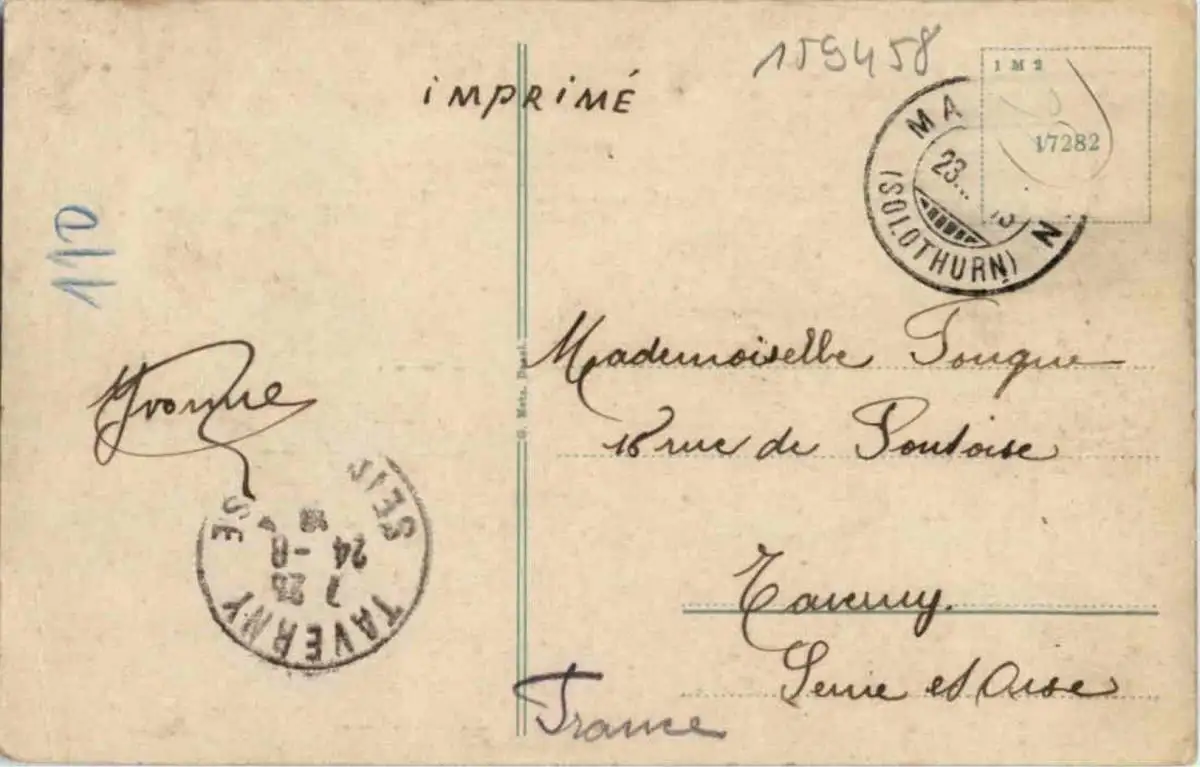 159458
IMPRIMÉ
1 M 2
17282
MA N
23... 13
(SOLOTHURN)
110
Mademoiselle
Yvonne
rue de Pontoise
G. Metz, Basel.
SEINE SE
24 -8
7 23
TAVERNY
Taverny.
Seine et Oise
France